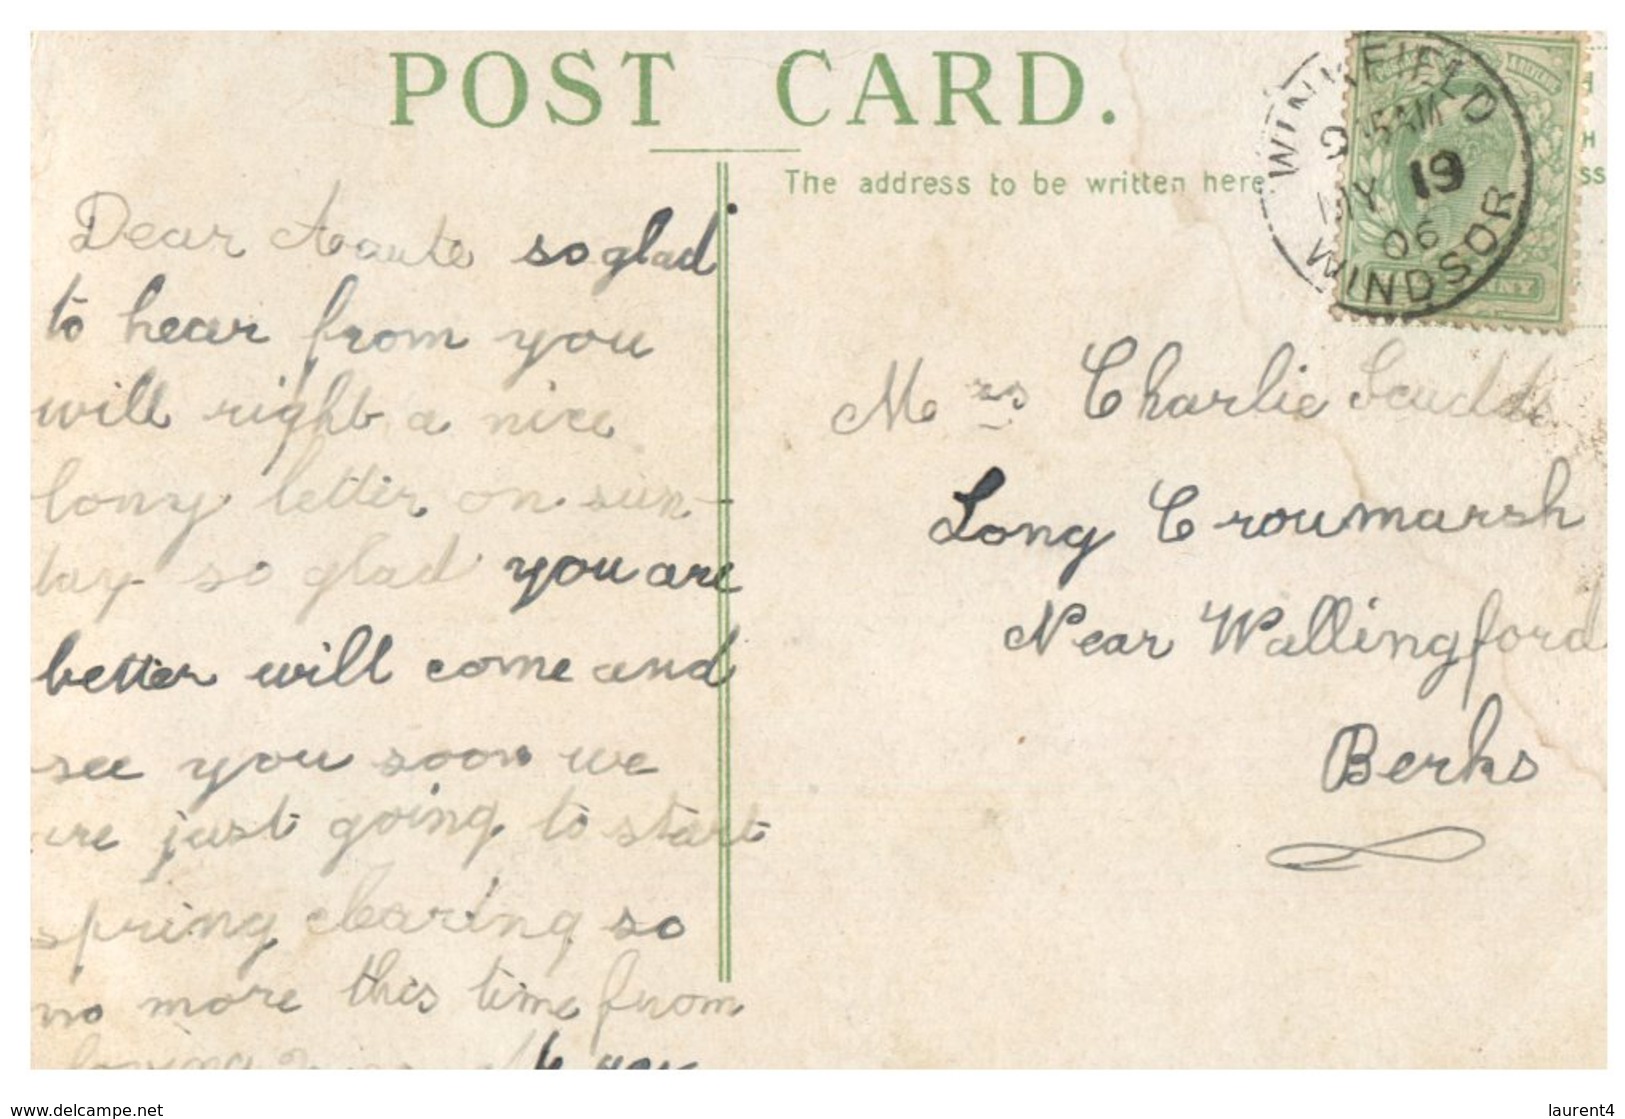 POST CARD.
The address to be written here
WINKFIELD
9 15 AM
MY 19
06
WINDSOR
Dear so glad
to hear from you
will right a nice
long letter on sun-
day so glad you are
better will come and
see you soon we
are just going to start
spring clearing so
no more this time from
loving
Mrs Charlie
Long Croumarsh
Near Wallingford
Berks
www.delcampe.net
laurent4